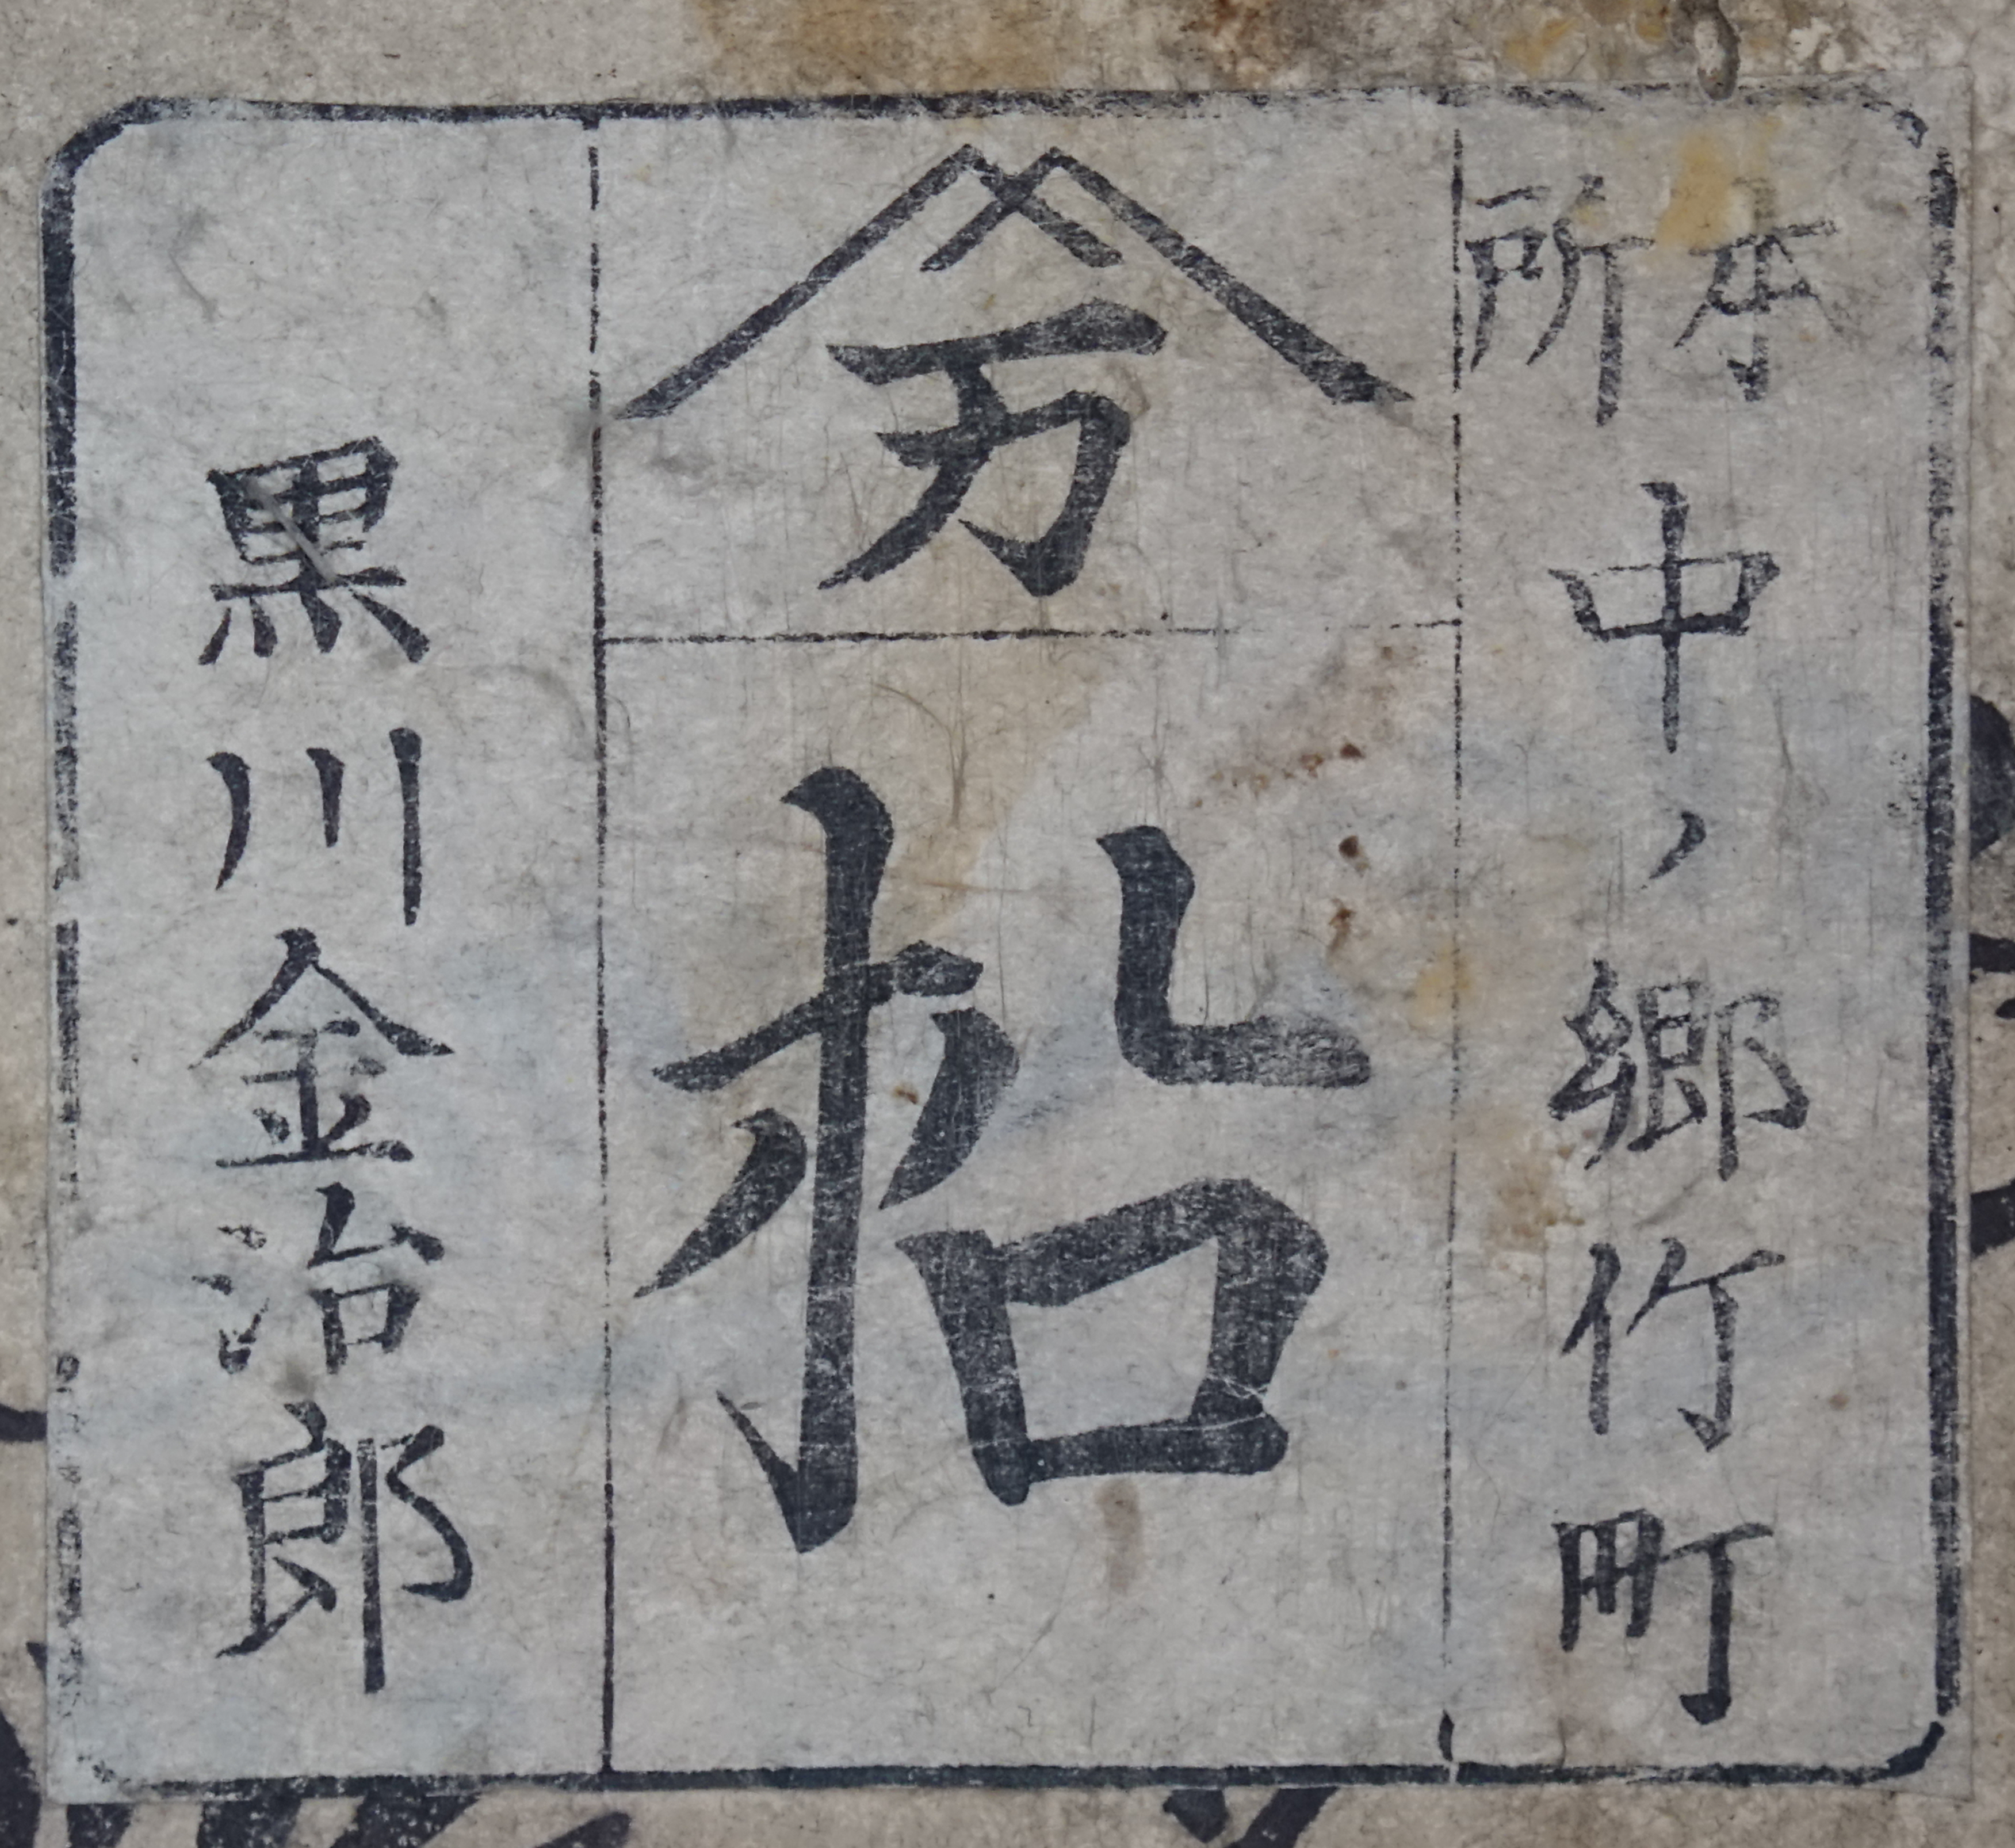 本所中ノ郷竹町
万
柗
黒川金治郎